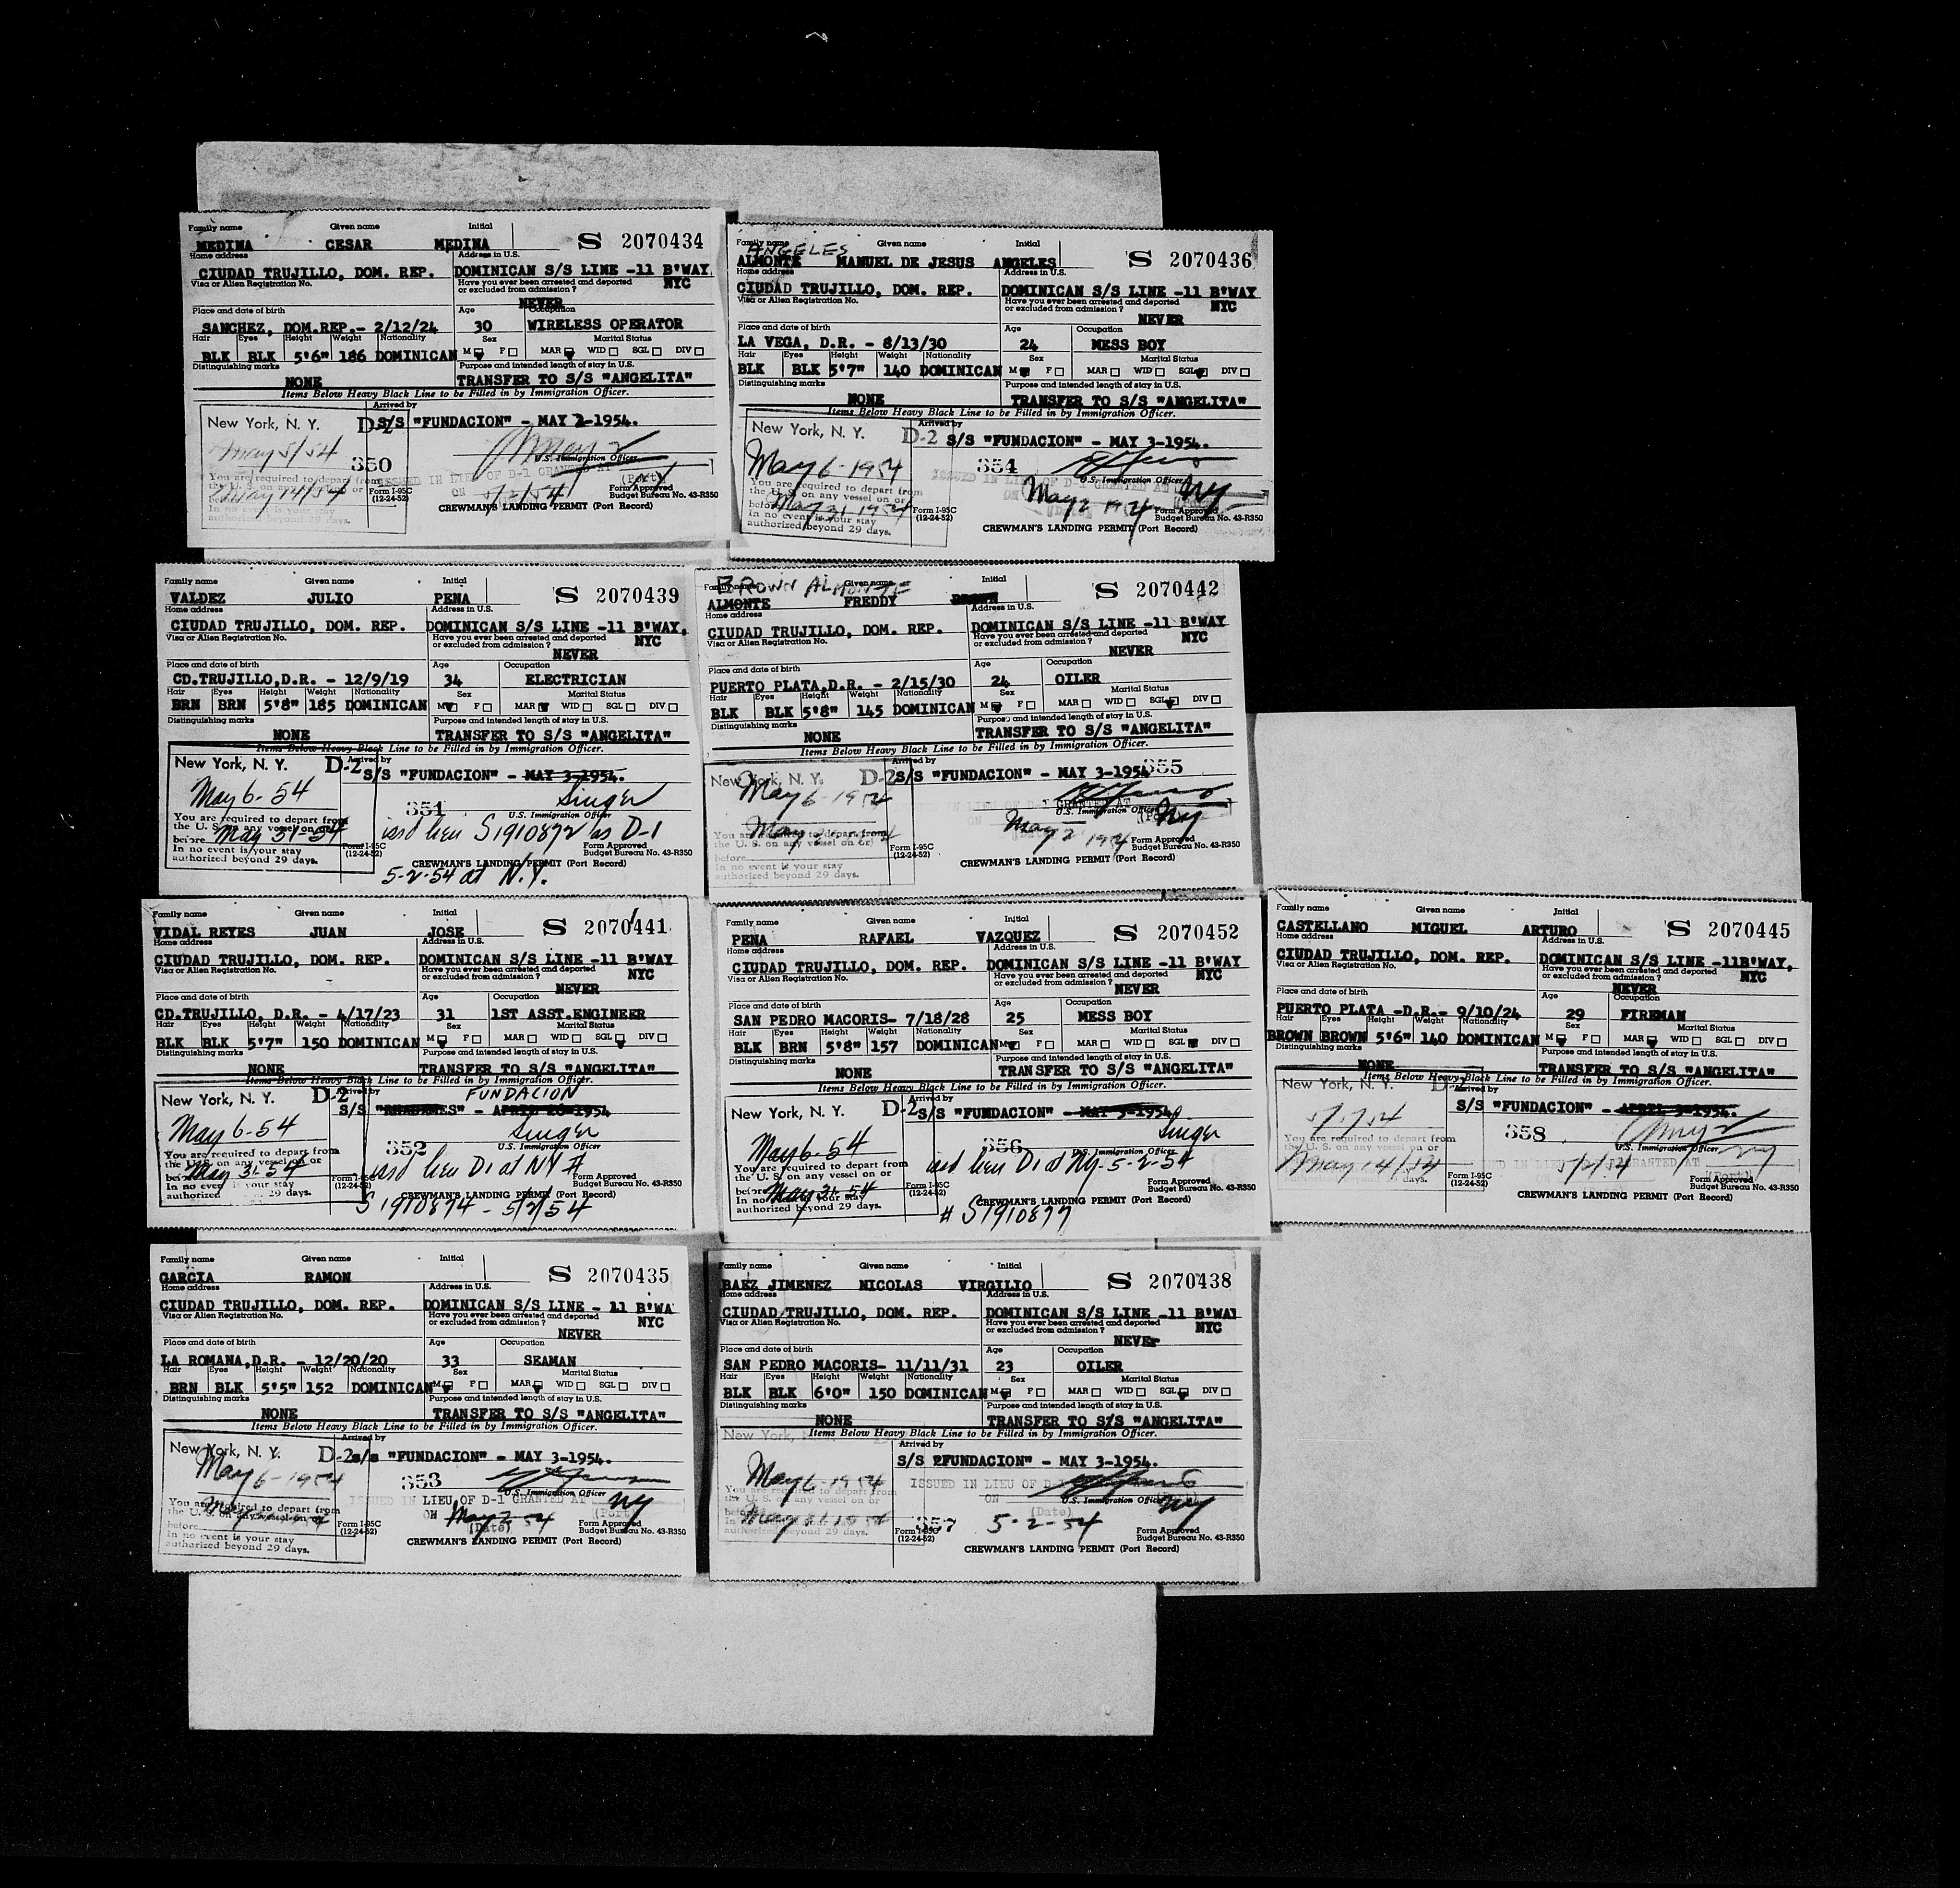 Family name Given name Initial
MEDINA CESAR MEDINA S 2070434
Home address Address in U.S.
CIUDAD TRUJILLO, DOM. REP. DOMINICAN S/S LINE -11 B'WAY,
Visa or Alien Registration No. Have you ever been arrested and deported or excluded from admission? NYC
NEVER
Place and date of birth Age Occupation
SANCHEZ, DOM.REP.- 2/12/24 30 WIRELESS OPERATOR
Hair Eyes Height Weight Nationality Sex Marital Status
BLK BLK 5'6" 186 DOMINICAN M F MAR WID SGL DIV
Distinguishing marks Purpose and intended length of stay in U.S.
NONE TRANSFER TO S/S "ANGELITA"
Items Below Heavy Black Line to be Filled in by Immigration Officer.
Arrived by
New York, N. Y. D-2 S/S "FUNDACION" - MAY 2-1954.
May 5/54 350
U.S. Immigration Officer
You are required to depart from ISSUED IN LIEU OF D-1 GRANTED AT (Port)
the U. S. on any vessel on or ON 5/2/54
before May 14/54 Form I-95C (12-24-52) Form Approved Budget Bureau No. 43-R350
In no event is your stay
authorized beyond 29 days.
CREWMAN'S LANDING PERMIT (Port Record)
Family name Given name Initial
ANGELES
ALMONTE MANUEL DE JESUS ANGELES S 2070436
Home address Address in U.S.
CIUDAD TRUJILLO, DOM. REP. DOMINICAN S/S LINE -11 B'WAY
Visa or Alien Registration No. Have you ever been arrested and deported or excluded from admission? NYC
NEVER
Place and date of birth Age Occupation
LA VEGA, D.R. - 8/13/30 24 MESS BOY
Hair Eyes Height Weight Nationality Sex Marital Status
BLK BLK 5'7" 140 DOMINICAN M F MAR WID SGL DIV
Distinguishing marks Purpose and intended length of stay in U.S.
NONE TRANSFER TO S/S "ANGELITA"
Items Below Heavy Black Line to be Filled in by Immigration Officer.
Arrived by
New York, N. Y. D-2 S/S "FUNDACION" - MAY 3-1954.
May 6-1954 354
U.S. Immigration Officer
You are required to depart from ISSUED IN LIEU OF D-1 GRANTED AT NY
the U. S. on any vessel on or ON May 2 1954
before May 31 1954 Form I-95C (12-24-52) Form Approved Budget Bureau No. 43-R350
In no event is your stay
authorized beyond 29 days.
CREWMAN'S LANDING PERMIT (Port Record)
Family name Given name Initial
VALDEZ JULIO PENA S 2070439
Home address Address in U.S.
CIUDAD TRUJILLO, DOM. REP. DOMINICAN S/S LINE -11 B'WAY,
Visa or Alien Registration No. Have you ever been arrested and deported or excluded from admission? NYC
NEVER
Place and date of birth Age Occupation
CD.TRUJILLO,D.R. - 12/9/19 34 ELECTRICIAN
Hair Eyes Height Weight Nationality Sex Marital Status
BRN BRN 5'8" 185 DOMINICAN M F MAR WID SGL DIV
Distinguishing marks Purpose and intended length of stay in U.S.
NONE TRANSFER TO S/S "ANGELITA"
Items Below Heavy Black Line to be Filled in by Immigration Officer.
Arrived by
New York, N. Y. D-2 S/S "FUNDACION" - MAY 3-1954.
May 6-54 351 Singer
U.S. Immigration Officer
You are required to depart from
the U. S. on any vessel on or issd lieu S1910872 as D-1
before May 31-54 Form I-95C (12-24-52) Form Approved Budget Bureau No. 43-R350
In no event is your stay
authorized beyond 29 days.
CREWMAN'S LANDING PERMIT (Port Record)
5-2-54 at N.Y.
Family name Given name Initial
BROWN ALMONTE
ALMONTE FREDDY BROWN S 2070442
Home address Address in U.S.
CIUDAD TRUJILLO, DOM. REP. DOMINICAN S/S LINE -11 B'WAY
Visa or Alien Registration No. Have you ever been arrested and deported or excluded from admission? NYC
NEVER
Place and date of birth Age Occupation
PUERTO PLATA,D.R. - 2/15/30 24 OILER
Hair Eyes Height Weight Nationality Sex Marital Status
BLK BLK 5'8" 145 DOMINICAN M F MAR WID SGL DIV
Distinguishing marks Purpose and intended length of stay in U.S.
NONE TRANSFER TO S/S "ANGELITA"
Items Below Heavy Black Line to be Filled in by Immigration Officer.
Arrived by
New York, N. Y. D-2 S/S "FUNDACION" - MAY 3-1954 355
May 6-1954
IN LIEU OF D-1 GRANTED AT NY
U.S. Immigration Officer
You are required to depart from
the U. S. on any vessel on or ON May 2 1954
before Form I-95C (12-24-52) Form Approved Budget Bureau No. 43-R350
In no event is your stay
authorized beyond 29 days.
CREWMAN'S LANDING PERMIT (Port Record)
Family name Given name Initial
VIDAL REYES JUAN JOSE S 2070441
Home address Address in U.S.
CIUDAD TRUJILLO, DOM. REP. DOMINICAN S/S LINE -11 B'WAY
Visa or Alien Registration No. Have you ever been arrested and deported or excluded from admission? NYC
NEVER
Place and date of birth Age Occupation
CD.TRUJILLO, D.R. - 4/17/23 31 1ST ASST.ENGINEER
Hair Eyes Height Weight Nationality Sex Marital Status
BLK BLK 5'7" 150 DOMINICAN M F MAR WID SGL DIV
Distinguishing marks Purpose and intended length of stay in U.S.
NONE TRANSFER TO S/S "ANGELITA"
Items Below Heavy Black Line to be Filled in by Immigration Officer.
Arrived by FUNDACION
New York, N. Y. D-2 S/S - APRIL 1954
May 6-54 352 Singer
U.S. Immigration Officer
You are required to depart from
the U. S. on any vessel on or issd lieu D1 at NY #
before May 31-54 Form I-95C (12-24-52) Form Approved Budget Bureau No. 43-R350
In no event is your stay
authorized 29 days.
CREWMAN'S LANDING PERMIT (Port Record)
S 1910874 - 5/2/54
Family name Given name Initial
PENA RAFAEL VAZQUEZ S 2070452
Home address Address in U.S.
CIUDAD TRUJILLO, DOM. REP. DOMINICAN S/S LINE -11 B'WAY
Visa or Alien Registration No. Have you ever been arrested and deported or excluded from admission? NYC
NEVER
Place and date of birth Age Occupation
SAN PEDRO MACORIS- 7/18/28 25 MESS BOY
Hair Eyes Height Weight Nationality Sex Marital Status
BLK BRN 5'8" 157 DOMINICAN M F MAR WID SGL DIV
Distinguishing marks Purpose and intended length of stay in U.S.
NONE TRANSFER TO S/S "ANGELITA"
Items Below Heavy Black Line to be Filled in by Immigration Officer.
Arrived by
New York, N. Y. D-2 S/S "FUNDACION" - MAY 3-1954
May 6-54 356 Singer
U.S. Immigration Officer
You are required to depart from issd lieu D1 at NY-5-2-54
the U. S. on any vessel on or
before May 31-54 Form I-95C (12-24-52) Form Approved Budget Bureau No. 43-R350
In no event is your stay
authorized beyond 29 days.
CREWMAN'S LANDING PERMIT (Port Record)
# S1910877
Family name Given name Initial
CASTELLANO MIGUEL ARTURO S 2070445
Home address Address in U.S.
CIUDAD TRUJILLO, DOM. REP. DOMINICAN S/S LINE -11B'WAY,
Visa or Alien Registration No. Have you ever been arrested and deported or excluded from admission? NYC
NEVER
Place and date of birth Age Occupation
PUERTO PLATA -D.R.- 9/10/24 29 FIREMAN
Hair Eyes Height Weight Nationality Sex Marital Status
BROWN BROWN 5'6" 140 DOMINICAN M F MAR WID SGL DIV
Distinguishing marks Purpose and intended length of stay in U.S.
NONE TRANSFER TO S/S "ANGELITA"
Items Below Heavy Black Line to be Filled in by Immigration Officer.
Arrived by
New York, N. Y. S/S "FUNDACION" - APRIL 3-1954.
358
U.S. Immigration Officer
You are required to depart from
the U. S. on any vessel on or
May 14/54 D IN LIEU 5/2/54 GRANTED AT (Port)
days. Form I-95C (12-24-52) Form Approved Budget Bureau No. 43-R350
CREWMAN'S LANDING PERMIT (Port Record)
Family name Given name Initial
GARCIA RAMON S 2070435
Home address Address in U.S.
CIUDAD TRUJILLO, DOM. REP. DOMINICAN S/S LINE - 11 B'WA
Visa or Alien Registration No. Have you ever been arrested and deported or excluded from admission? NYC
NEVER
Place and date of birth Age Occupation
LA ROMANA,D.R. - 12/20/20 33 SEAMAN
Hair Eyes Height Weight Nationality Sex Marital Status
BRN BLK 5'5" 152 DOMINICAN M F MAR WID SGL DIV
Distinguishing marks Purpose and intended length of stay in U.S.
NONE TRANSFER TO S/S "ANGELITA"
Items Below Heavy Black Line to be Filled in by Immigration Officer.
Arrived by
New York, N. Y. D-2 s/s "FUNDACION" - MAY 3-1954.
May 6-1954 353
U.S. Immigration Officer
You are required to depart from ISSUED IN LIEU OF D-1 GRANTED AT NY (Port)
the U. S. on any vessel on or ON May 2 54 (Date)
before Form I-95C (12-24-52) Form Approved Budget Bureau No. 43-R350
In no event is your stay
authorized beyond 29 days.
CREWMAN'S LANDING PERMIT (Port Record)
Family name Given name Initial
BAEZ JIMENEZ NICOLAS VIRGILIO S 2070438
Home address Address in U.S.
CIUDAD TRUJILLO, DOM. REP. DOMINICAN S/S LINE -11 B'WAY
Visa or Alien Registration No. Have you ever been arrested and deported or excluded from admission? NYC
NEVER
Place and date of birth Age Occupation
SAN PEDRO MACORIS- 11/11/31 23 OILER
Hair Eyes Height Weight Nationality Sex Marital Status
BLK BLK 6'0" 150 DOMINICAN M F MAR WID SGL DIV
Distinguishing marks Purpose and intended length of stay in U.S.
NONE TRANSFER TO S/S "ANGELITA"
New York, N. Items Below Heavy Black Line to be Filled in by Immigration Officer.
Arrived by
S/S "FUNDACION" - MAY 3-1954.
May 6-1954 ISSUED IN LIEU OF D-1
You are required to depart from ON U.S. Immigration Officer NY
the U. S. on any vessel on or (Date)
before May 31 1954 357 5-2-54
In no event is your stay Form I-95C (12-24-52) Form Approved Budget Bureau No. 43-R350
authorized beyond 29 days.
CREWMAN'S LANDING PERMIT (Port Record)